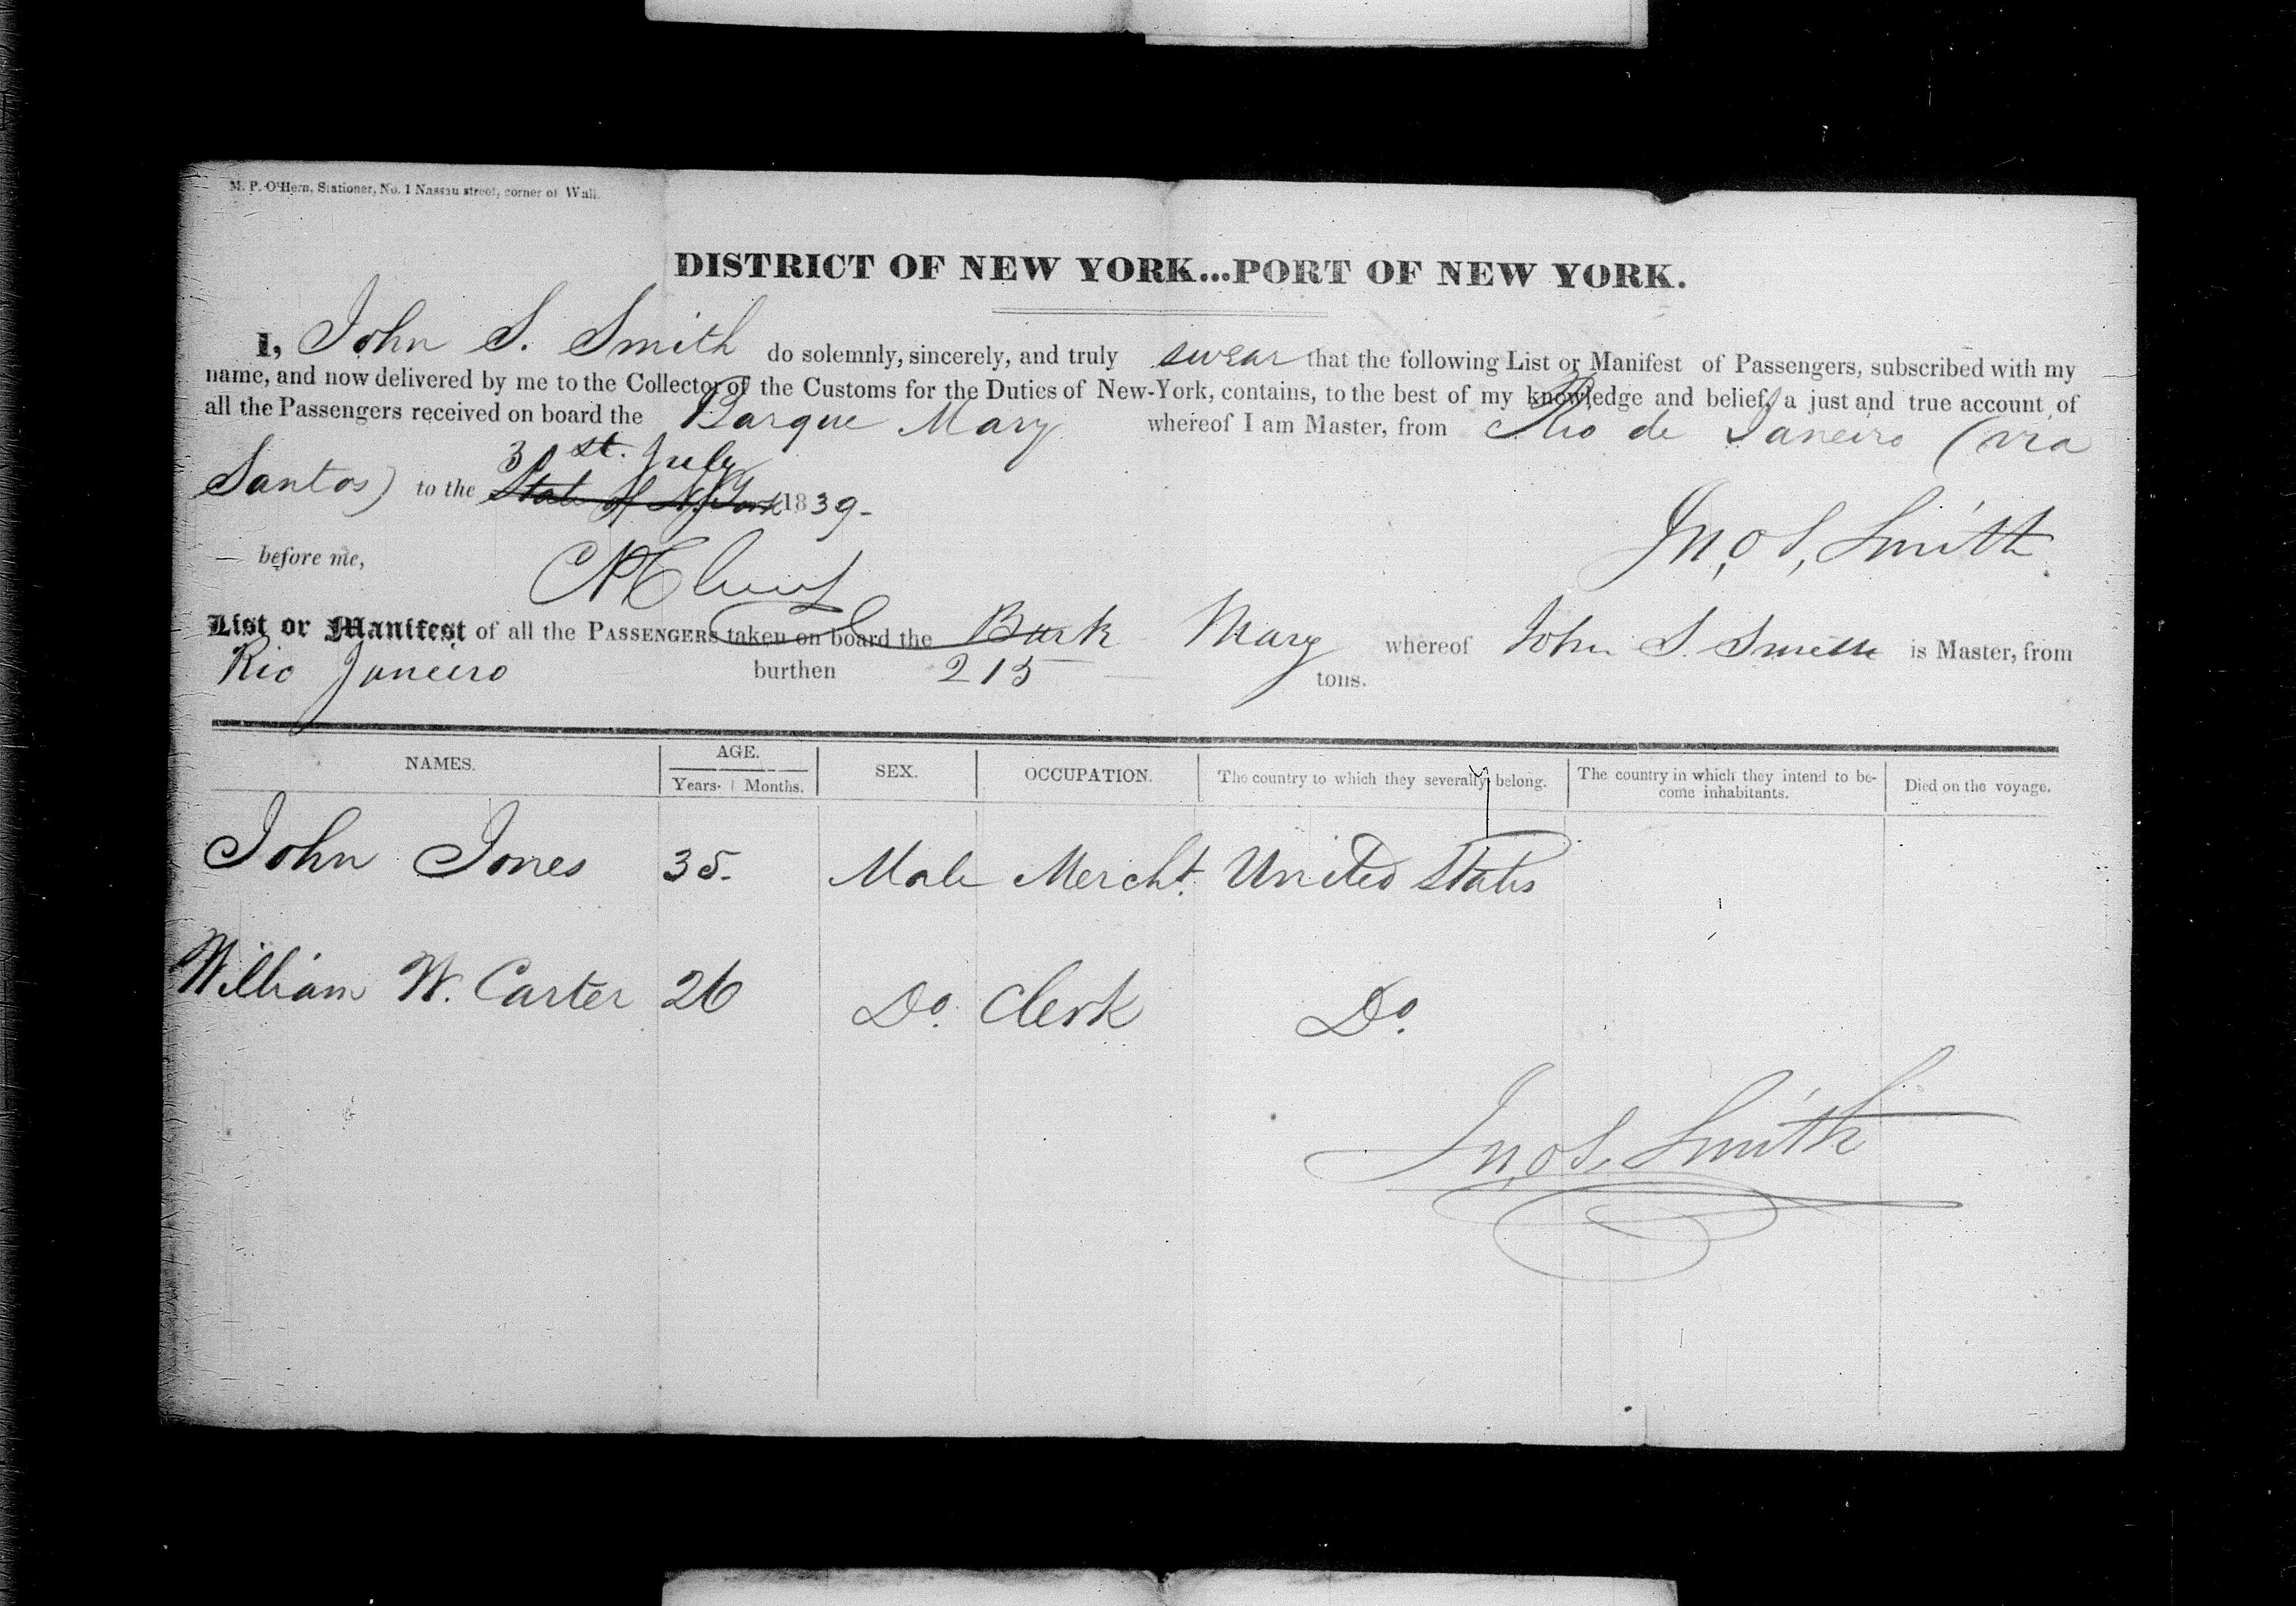 M. P. O'Hern, Stationer, No. 1 Nassau street, corner of Wall.
DISTRICT OF NEW YORK...PORT OF NEW YORK.
I, John S. Smith do solemnly, sincerely, and truly swear that the following List or Manifest of Passengers, subscribed with my
name, and now delivered by me to the Collector of the Customs for the Duties of New-York, contains, to the best of my knowledge and belief, a just and true account of
all the Passengers received on board the Barque Mary whereof I am Master, from Rio de Janeiro (via
31 st. July
Santos) to the State of N. York 1839-
Jno, S, Smith
before me,
List or Manifest of all the PASSENGERS taken on board the Bark Mary whereof John S. Smith is Master, from
Rio Janeiro burthen 215 tons.
NAMES. AGE. SEX. OCCUPATION. The country to which they severally belong. The country in which they intend to be-
come inhabitants. Died on the voyage.
Years. Months.
John Jones 35. Male Mercht. United States
William W. Carter 26 Do. Clerk Do.
Jno S, Smith